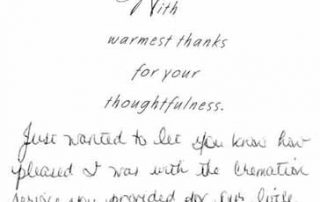 With
warmest thanks
for your
thoughtfulness.
Just wanted to let you know how
pleased I was with the cremation
service you provided for our little